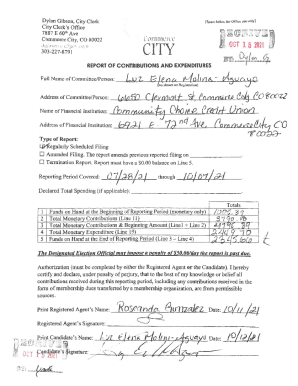 Dylan Gibson, City Clerk
City Clerk's Office
7887 E 60th Ave
Commerce City, CO 80022
303-227-8791
Commerce
CITY
[Below for Office use only]
RECEIVED
OCT 13 2021
REPORT OF CONTRIBUTIONS AND EXPENDITURES
Full Name of Committee/Person: Luz Elena Molina-Aguayo
Address of Committee/Person: 6650 Clermont St, Commerce City, CO 80022
Name of Financial Institution: Community Choice Credit Union
Address of Financial Institution: 6921 E 72nd Ave. Commerce City CO 80022
Type of Report:
Regularly Scheduled Filing
Amended Filing. The report amends previous report filed on
Termination Report. Report must have a $0.00 balance on Line 5.
Reporting Period Covered: 07/28/21 through 10/07/21
Declared Total Spending (if applicable):
Totals
1 Funds on Hand at the Beginning of Reporting Period (monetary only)
2 Total Monetary Contributions (Line 11)
3 Total Monetary Contributions & Beginning Amount (Line 1 + Line 2)
4 Total Monetary Expenditures (Line 19)
5 Funds on Hand at the End of Reporting Period (Line 3 – Line 4)
The Designated Election Official may impose a penalty of $50.00/day the report is past due.
Authorization (must be completed by either the Registered Agent or the Candidate). I hereby
certify and declare, under penalty of perjury, that to the best of my knowledge or belief all
contributions received during this reporting period, including any contributions received in the
form of membership dues transferred by a membership organization, are from permissible
sources.
Print Registered Agent's Name: Rosmanda Gurrzalez Date: 10/11/21
Registered Agent's Signature:
Print Candidate's Name: Luz Elena Molina-Aguayo Date: 10/12/21
Candidate's Signature: